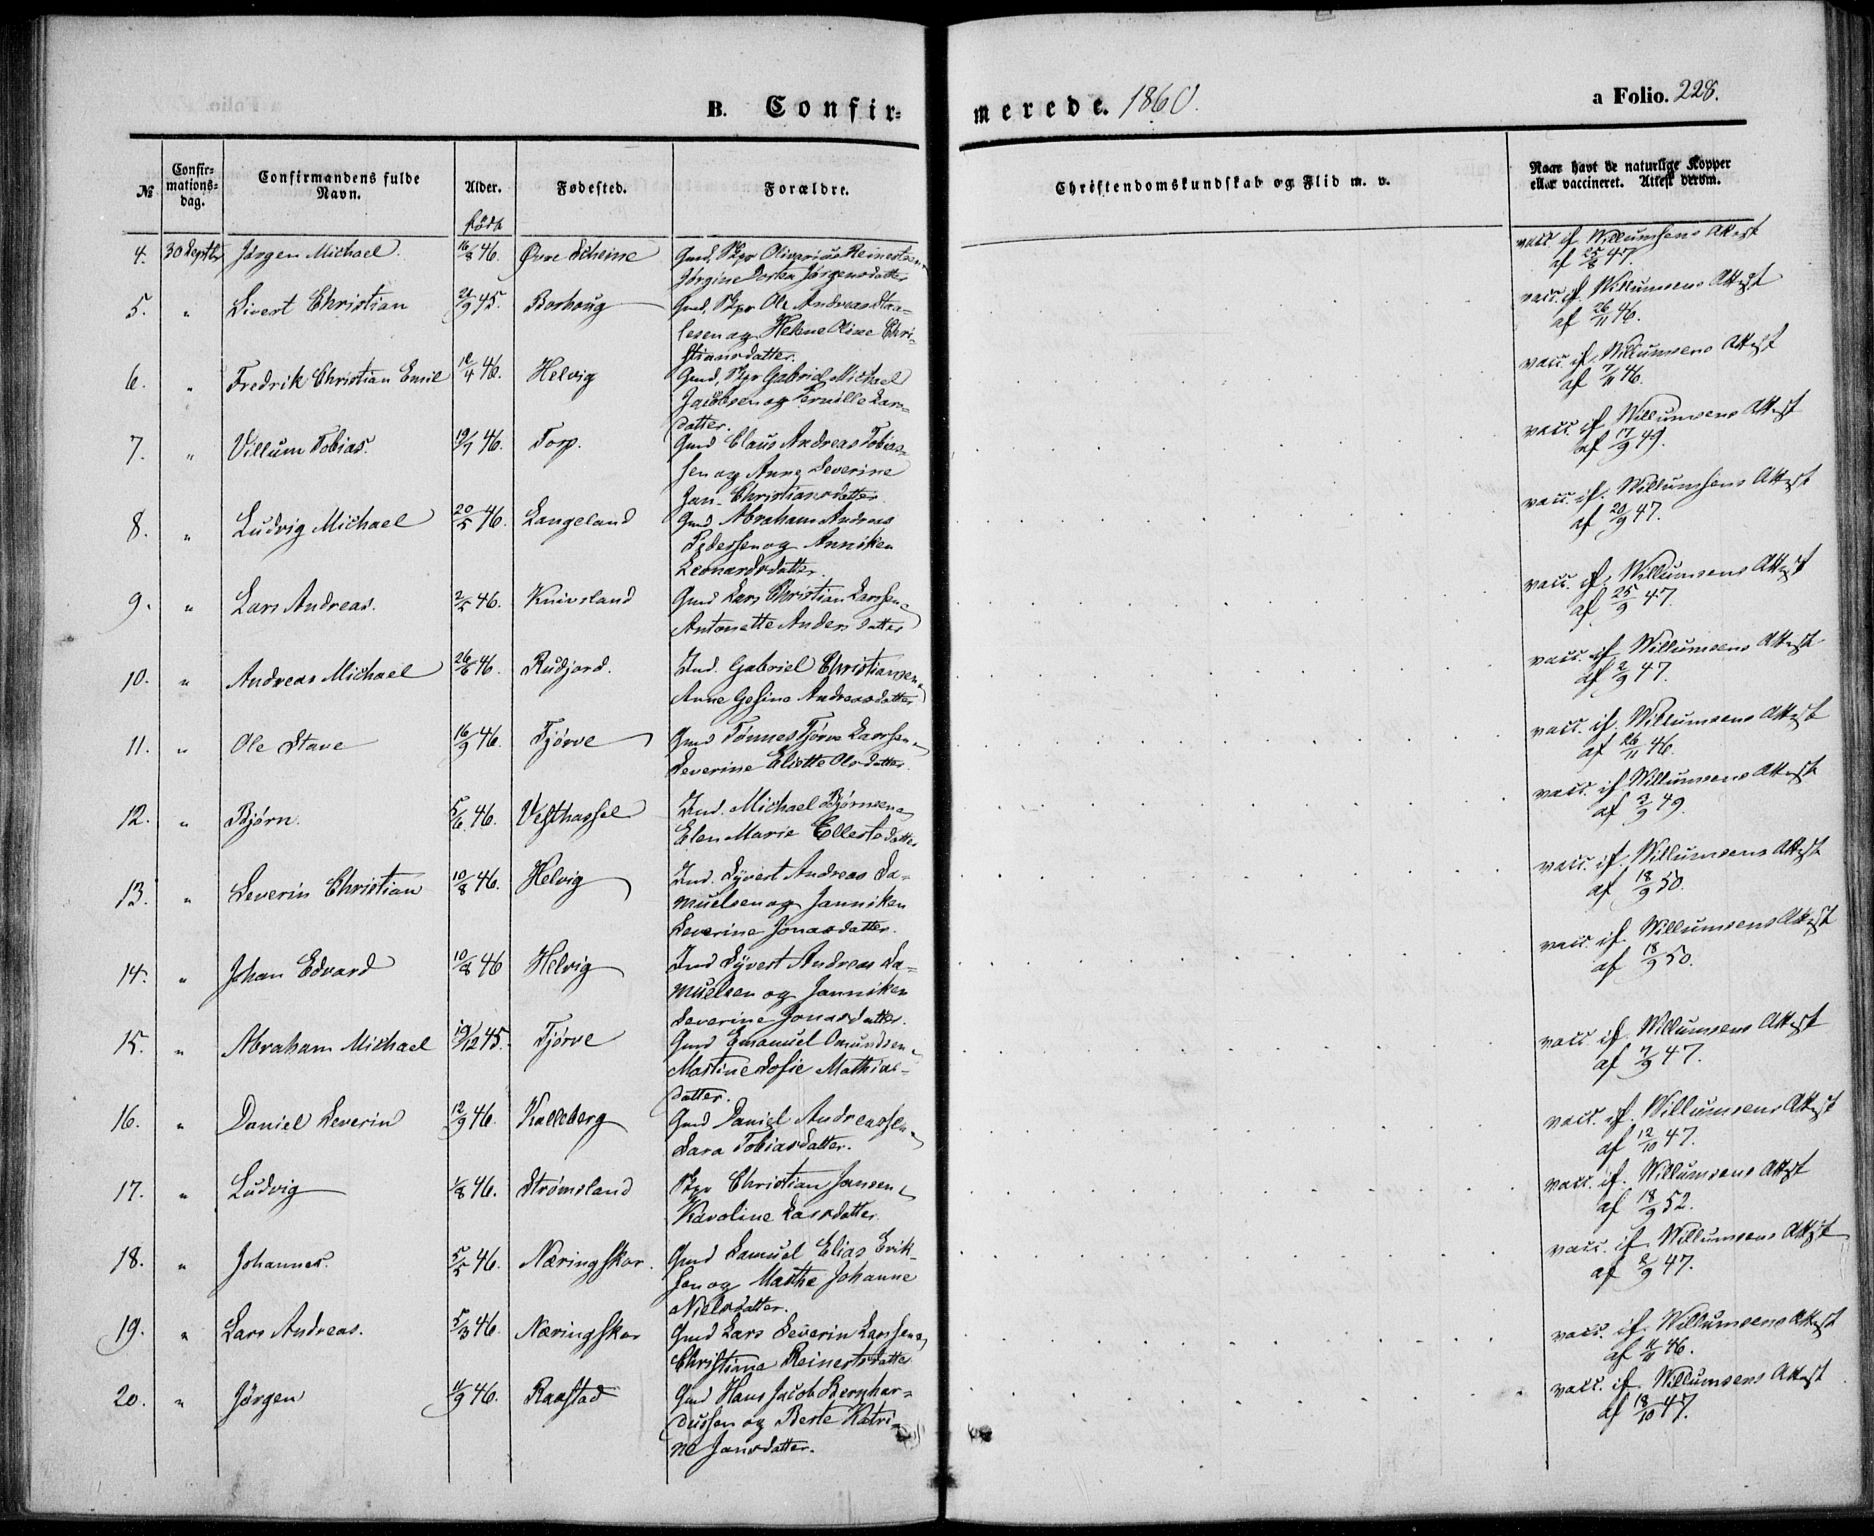 B. Confir-
merede. 1860.
a Folio. 228.
№
Confir-
mations-
dag.
Confirmandens fulde
Navn.
Alder.
født
Fødested.
Forældre.
Christendomskundskab og Flid m. v.
Naar havt de naturlige Kopper
eller vaccineret. Attest derom.
4. 30 Septbr Jørgen Michael. 16/8 46. Øvre Skeime Gmd, Skpr Olivarius Reinertsen
Jørgine Dortea Jørgensdatter
vacc. if. Willumsens Attest
af 25/8 47.
5. " Sivert Christian 21/9 45. Borhoug Gmd, Skpr Ole Andreas Staa-
lesen og Helene Oline Chri-
stiansdatter.
vacc. if. Willumsens Attest
af 26/11 46.
6. " Fredrik Christian Emil 12/4 46. Helvig Gmd, Skpr Gabriel Michael
Jacobsen og Pernille Lars-
datter.
vacc. if. Willumsens Attest
af 7/11 46.
7. " Villum Tobias. 19/7 46. Torp. Gmd Claus Andreas Tobias-
sen og Anne Severine
Jan-Christiansdatter
vacc. if Willumsens Attest
af 17/9 49.
8. " Ludvig Michael 20/5 46. Langeland Gmd Abraham Andreas
Pedersen og Anniken
Leonardsdatter.
vacc. if. Willumsens Attest
af 20/9 47.
9. " Lars Andreas. 2/5 46. Knivsland Gmd Lars Christian Larssen
Antonette Andersdatter
vacc. if. Willumsens Attest
af 25/9 47.
10. " Andreas Michael 26/6 46. Rudjord. Ind. Gabriel Christiansen
Anne Gesine Andreasdatter
vacc. if Willumsens Attest
af 2/9 47.
11. " Ole Stave 16/9 46. Tjørve Gmd Tønnes Tjørve Larssen
Severine Elisette Olsdatter.
vacc. if. Willumsens Attest
af 26/11 46.
12. " Bjørn. 5/6 46. Vesthassel Ind. Michael Bjørnsen
Elen Marie Ellertsdatter
vacc. if Willumsens Attest
af 3/9 49.
13. " Severin Christian 10/8 46. Helvig Ind. Syvert Andreas Sa-
muelsen og Janniken
Severine Jonasdatter.
vacc. if. Willumsens Attest
af 18/9 50.
14. " Johan Edvard 10/8 46 Helvig Ind Syvert Andreas Sa-
muelsen og Janniken
Severine Jonasdatter.
vacc. if. Willumsens Attest
af 18/9 50.
15. " Abraham Michael 19/12 45. Tjørve Gmd Emanuel Omundsen
Martine Sofie Mathias-
datter.
vacc if. Willumsens Attest
af 7/9 47.
16. " Daniel Severin 12/9 46. Kalleberg Gmd Daniel Andreassen
Sara Tobiasdatter.
vacc. if. Willumsens Attest
af 12/10 47.
17. " Ludvig 1/8 46. Strømsland Skpr Christian Jansen
Karoline Larsdatter
vacc. if. Willumsens Attest
af 18/9 52.
18. " Johannes. 5/5 46. Næringskor. Gmd Samuel Elias Erik-
sen og Marthe Johanne
Nielsdatter.
vacc. if Willumsens Attest
af 2/9 47.
19. " Lars Andreas. 5/3 46. Næringskor Gmd Lars Severin Larssen
Christiane Reinertsdatter
vacc. if. Willumsens Attest
af 46.
20. " Jørgen 11/9 46. Raastad Gmd Hans Jacob Bernhar-
dussen og Berte Katri-
ne Jansdatter.
vacc. if. Willumsens Attest
af 18/10 47.